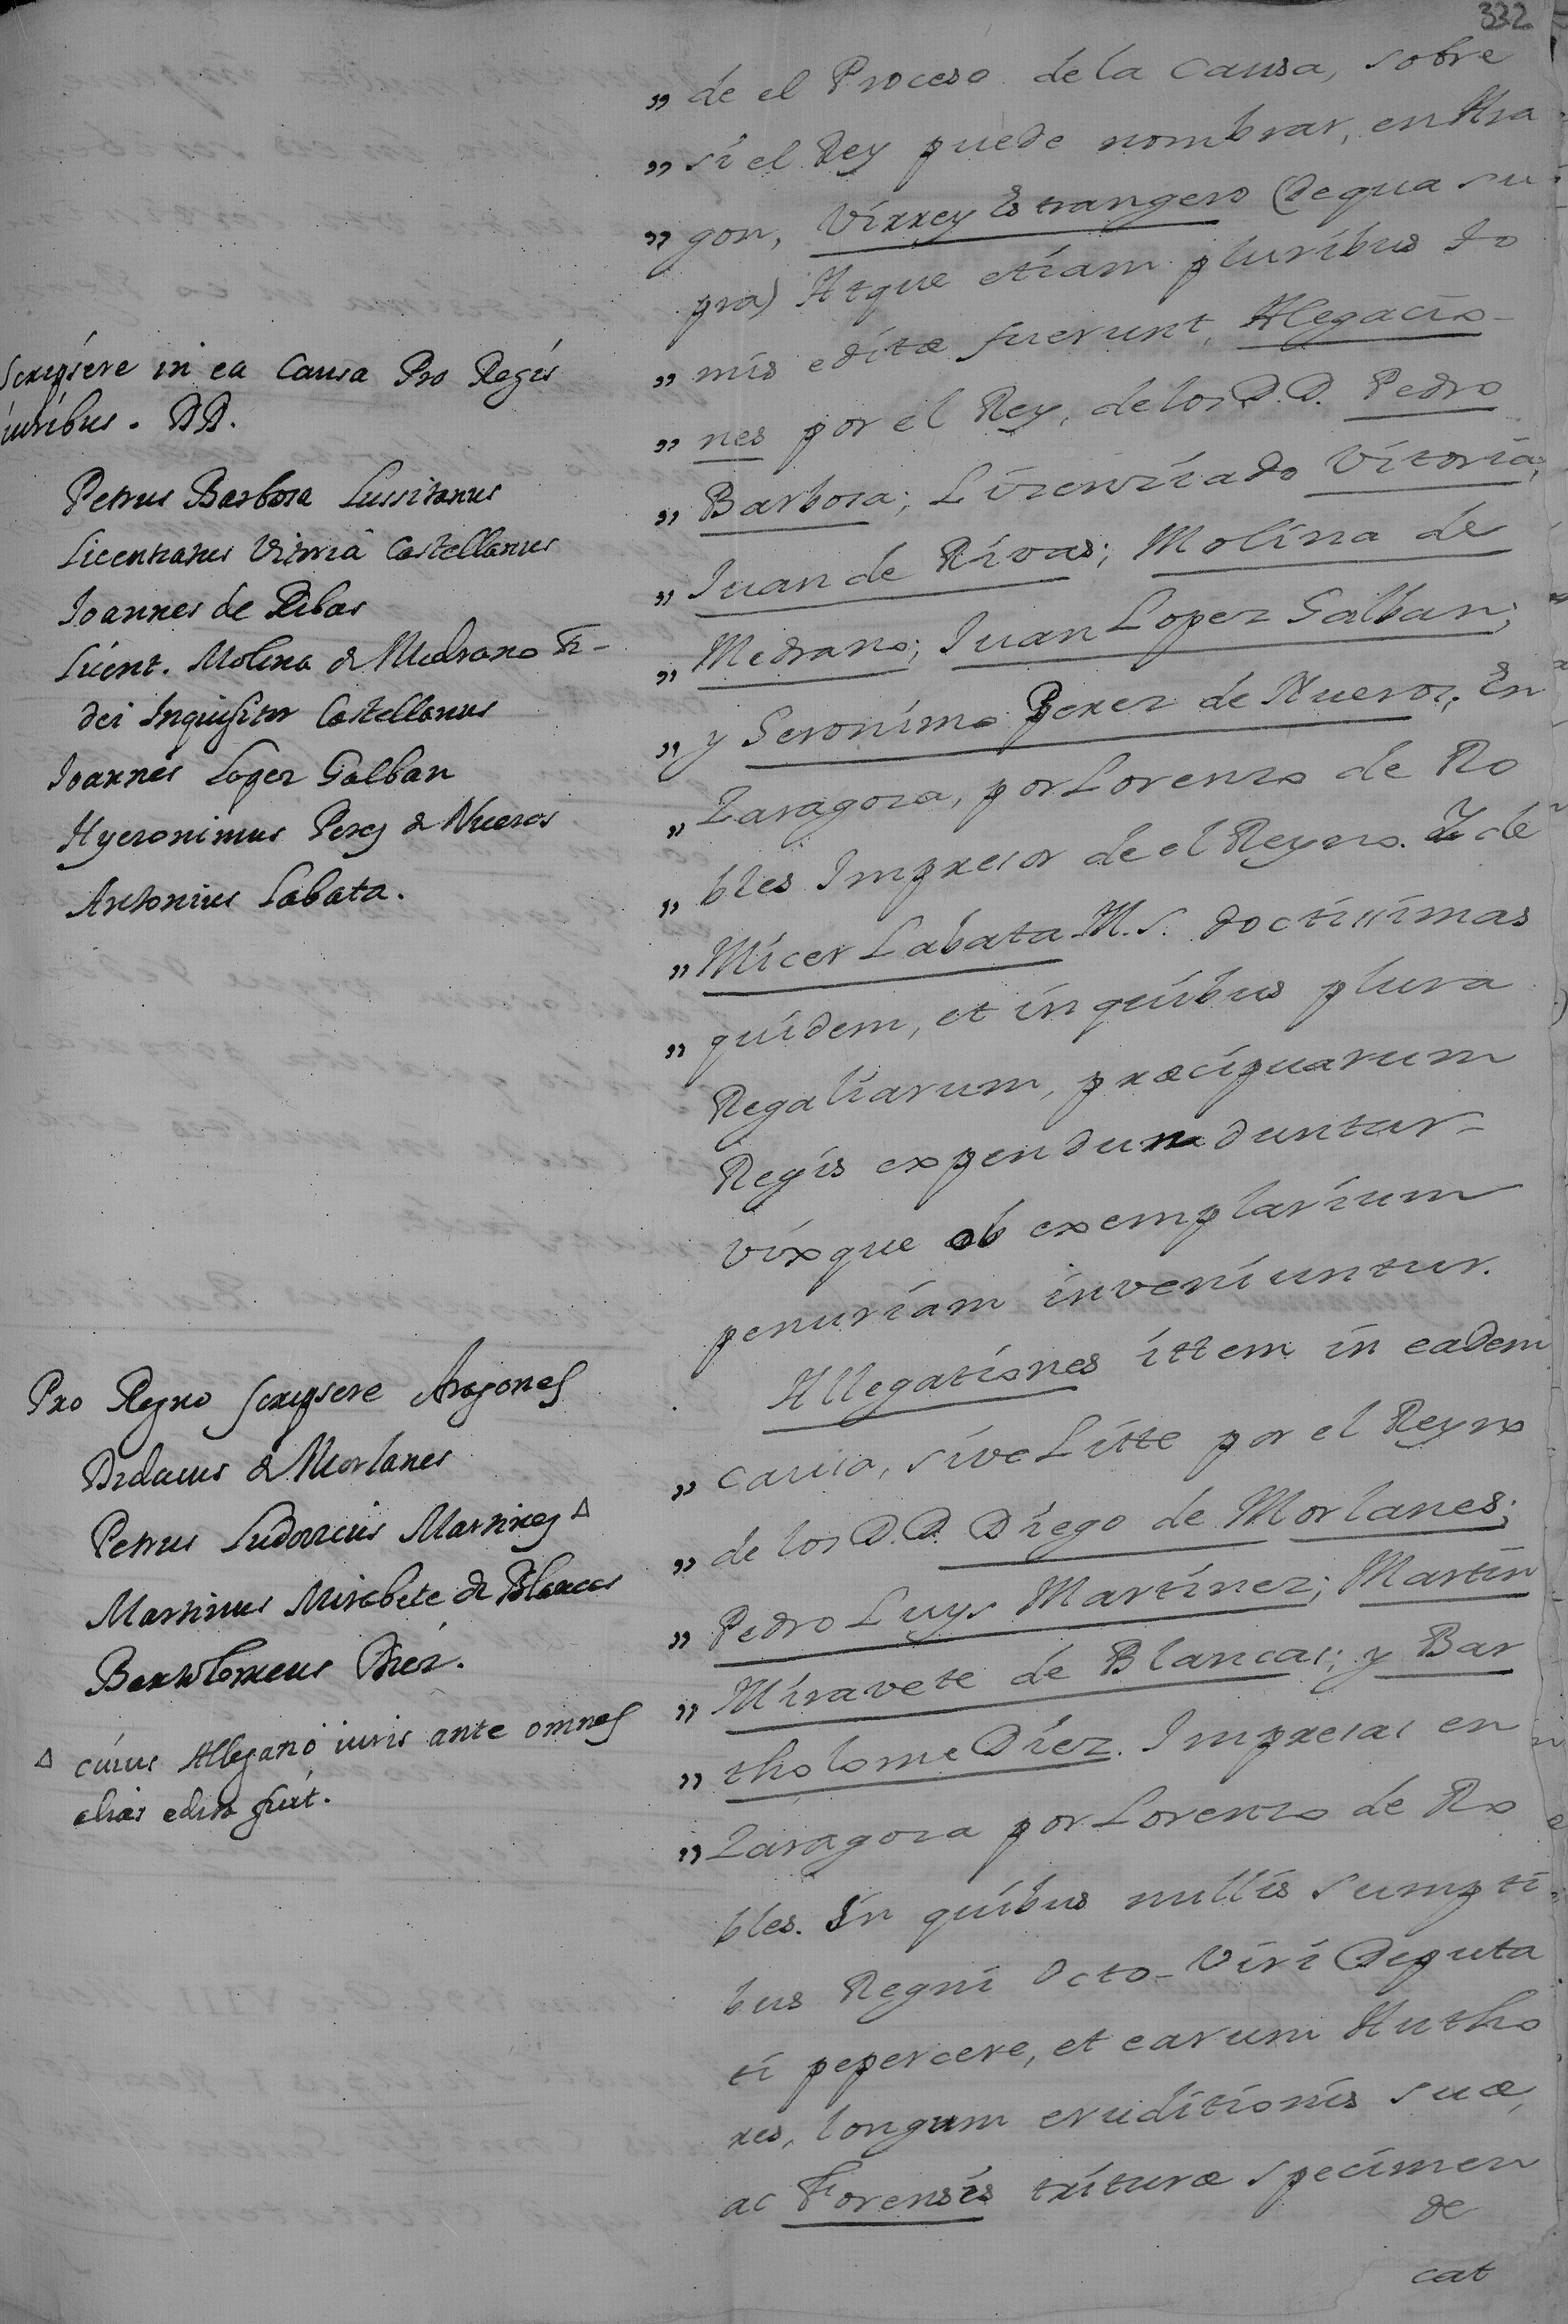 332
„ de el Proceso de la Causa, sobre
„ si el Rey puede nombrar, en Ara
„ gon, Virrey Estrangero (de qua su
pra) Atque etiam pluribus To
„ mis editæ fuerunt, Alegacio-
„ nes por el Rey, de los D.D. Pedro
„ Barbosa; Lizenziado Vitoria;
„ Juan de Rivas; Molina de
„ Medrano; Juan Lopez Galban;
„ y Geronimo Perez de Nueros; En
„ Zaragoza, por Lorenzo de Ro
„ bles Impresor de el Reyno. Y de
„ Micer Labata M.S. doctissimas
„ quidem, et in quibus plura
Regaliarum, præcipuarum
Regis expendunduntur-
vixque ob exemplarium
penuriam inveniuntur.
Allegationes ittem in eadem
„ causa, sive Litte por el Reyno
„ de los D.D. Diego de Morlanes;
„ Pedro Luys Martinez; Martin
„ Miravete de Blancas; y Bar
„ tholome Diez. Impresas en
„ Zaragoza por Lorenzo de Ro
bles. In quibus nullis sumpti
bus Regni Octo-Viri Deputa
ti pepercere, et earum Autho
res, longum eruditionis suæ,
ac Forensis trituræ specimen
de
cat
Scripsére in ea Causa Pro Regis
iuribus. DD.
Petrus Barbosa Lussitanus
Licentiatus Vitoriâ Castellanus
Joannes de Ribas
Licent. Molina de Medrano Fi-
dei Inquisitor Castellanus
Joannes Lopez Galban
Hyeronimus Perez de Nueros
Antonius Labata.
Pro Regno scripsere Aragones
Didacus de Morlanes
Petrus Ludovicus Martinez Δ
Martinus Mirabete de Blancas
Bartolomeus Diéz.
Δ cúius Allegatio iuris ante omnes
alias edita fuit.